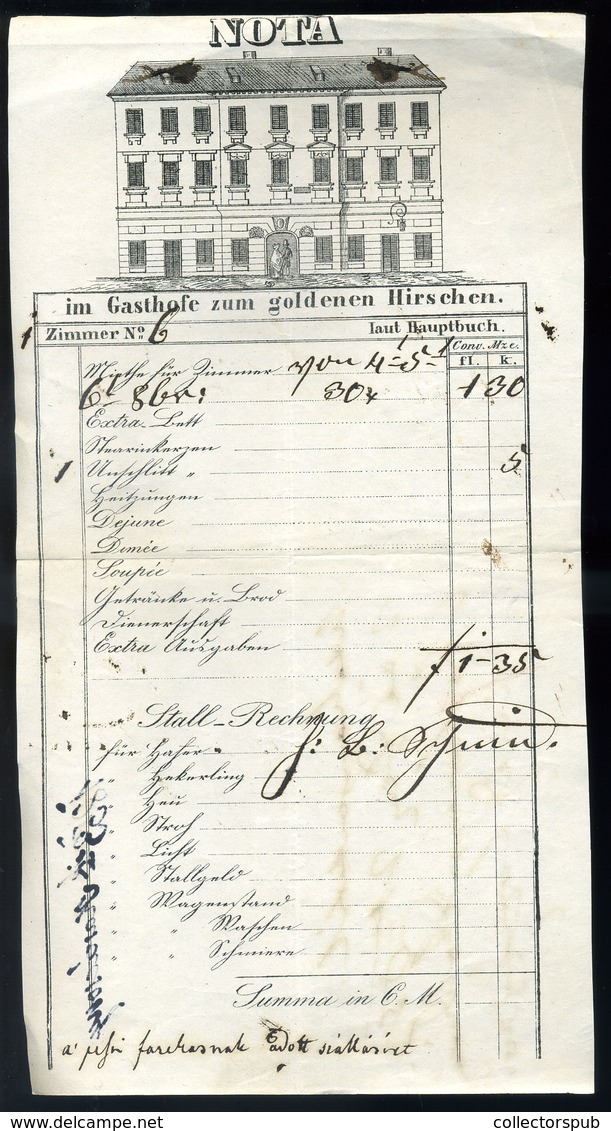 NOTA
im Gasthofe zum goldenen Hirschen.
Zimmer No. 6 laut Hauptbuch.
Conv. Mze.
fl. k.
Miethe für Zimmer von 4-5-
6 8br: 30x 1 30
Extra-Bett
Stearinkerzen
1 Unschlitt " 5
Heitzungen
Dejune
Dinnée
Soupée
Getränke u. Brod
Dienerschaft
Extra Ausgaben
f 1-35
Stall-Rechnung
für Hafer
" Hekerling
" Heu
" Stroh
" Licht
" Stallgeld
" Wagenstand
" " Waschen
" " Schmiere
Summa in C. M.
a' pesti farkasnak adott szállásért
collectorspub